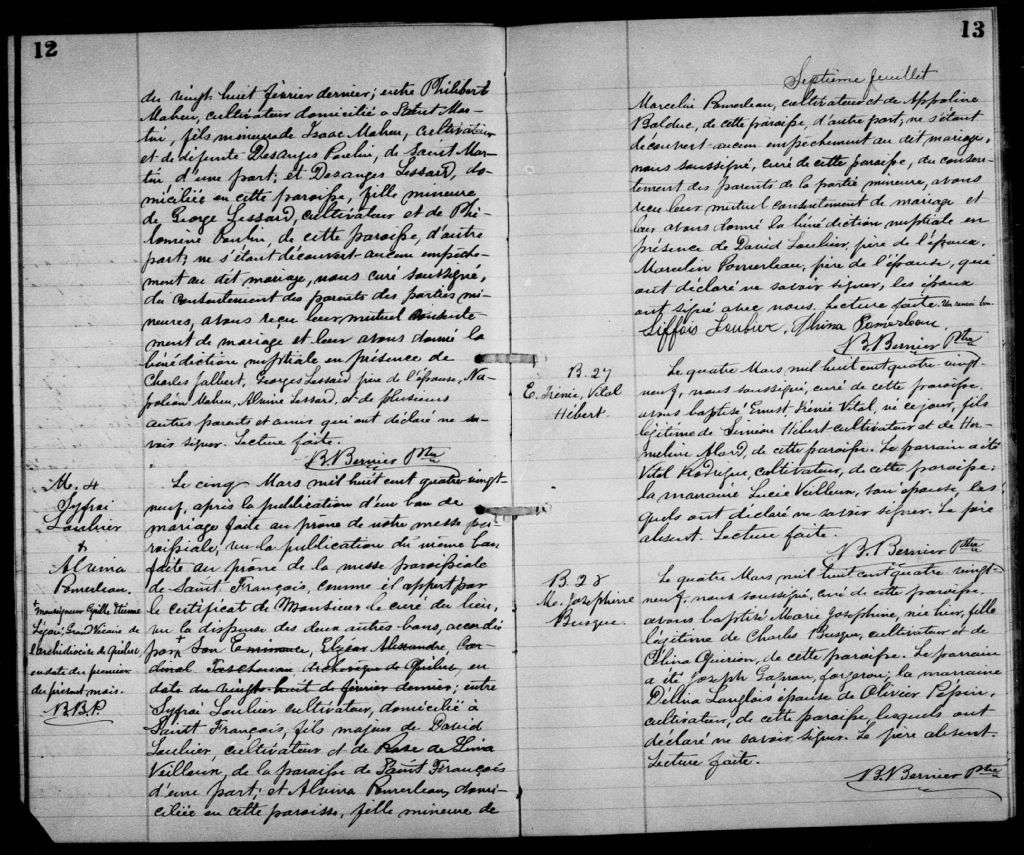 12
du vingt huit février dernier; entre Philibert
Maheu, cultivateur domicilié à Saint Mar-
tin, fils mineur de Isaac Maheu, cultivateur
et de défunte Desanges Poulin, de Saint Mar-
tin d'une part; et Desanges Lessard, do-
miciliée en cette paroisse, fille mineure
de George Lessard, cultivateur et de Phi-
lomène Poulin, de cette paroisse, d'autre
part; ne s'étant découvert aucun empêche-
ment au dit mariage, nous curé soussigné,
du consentement des parents des parties mi-
neures, avons reçu leur mutuel consente-
ment de mariage et leur avons donné la
bénédiction nuptiale en présence de
Charles Jalbert, Georges Lessard père de l'épouse, Na-
poléon Maheu, Alvine Lessard, et de plusieurs
autres parents et amis qui ont déclaré ne sa-
voir signer. Lecture faite.
N. Bernier Ptre
M. 4
Syfroi
Loubier
+
Alvina
Pomerleau.
+ monseigneur Cyrille Etienne
Légaré, Grand Vicaire de
l'archidiocèse de Québec
en date du premier
du présent mois.
N.B.P.
Le cinq Mars mil huit cent quatre vingt-
neuf, après la publication d'un ban de
mariage faite au prone de notre messe pa-
roissiale, vu la publication du même ban
faite au prone de la messe paroissiale
de Saint François, comme il appert par
le certificat de Monsieur le curé du lieu,
vu la dispense des deux autres bans, accordée
par + Son Eminence, Elzéar Alexandre, Car-
dinal Taschereau Archevêque de Québec, en
date du vingt huit de février dernier; entre
Syfroi Loubier cultivateur, domicilié à
Saint François, fils majeur de David
Loubier, cultivateur et de Rose de Lima
Veilleux, de la paroisse de Saint François
d'une part; et Alvina Pomerleau, domi-
ciliée en cette paroisse, fille mineure de
13
Septième feuillet
Marcelin Pomerleau, cultivateur et de Appoline
Bolduc, de cette paroisse, d'autre part; ne s'étant
découvert aucun empêchement au dit mariage,
nous soussigné, curé de cette paroisse, du consen-
tement des parents de la partie mineure, avons
reçu leur mutuel consentement de mariage et
leur avons donné la bénédiction nuptiale en
présence de David Loubier, père de l'époux,
Marcelin Pomerleau, père de l'épouse, qui
ont déclaré ne savoir signer, les époux
ont signé avec nous. Lecture faite. Un renvoi bon.
Siffois Loubier, Alvina Pomerleau.
N. Bernier Ptre
B. 27
E. Irénée, Vital
Hébert.
Le quatre Mars mil huit cent quatre vingt-
neuf, nous soussigné, curé de cette paroisse,
avons baptisé Ernest Irénée Vital, né ce jour, fils
légitime de Siméon Hébert cultivateur et de Her-
meline Alard, de cette paroisse. Le parrain a été
Vital Rodrigue, cultivateur, de cette paroisse;
la marraine Lucie Veilleux, son épouse, les-
quels ont déclaré ne savoir signer. Le père
absent. Lecture faite.
N. Bernier Ptre
B. 28
Me. Josephine
Busque.
Le quatre Mars mil huit cent quatre vingt-
neuf, nous soussigné, curé de cette paroisse,
avons baptisé Marie Josephine, née hier, fille
légitime de Charles Busque, cultivateur et de
Célina Quirion, de cette paroisse. Le parrain
a été Joseph forgeron; la marraine
Délina Langlois épouse de Olivier Pépin,
cultivateur, de cette paroisse, lesquels ont
déclaré ne savoir signer. Le père absent.
Lecture faite.
N. Bernier Ptre